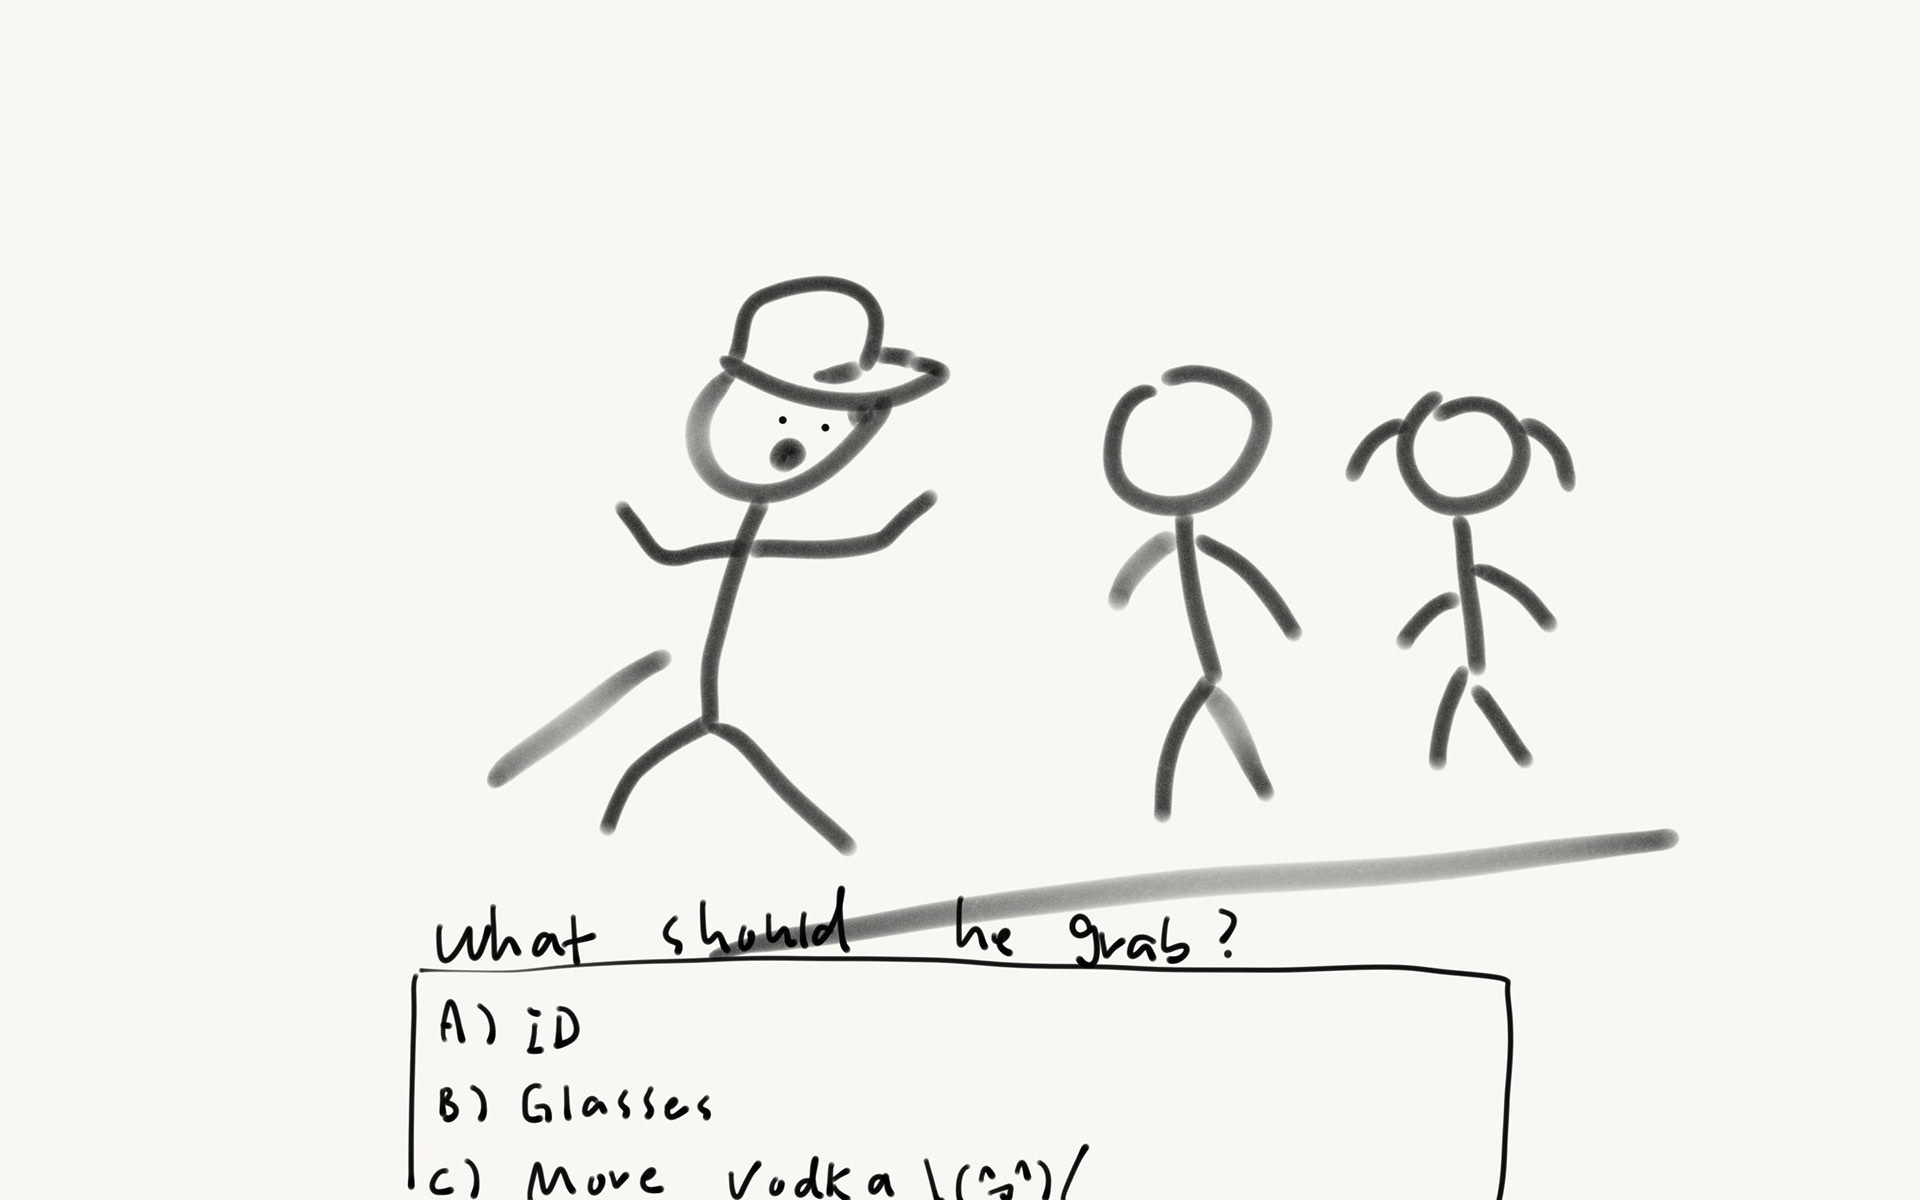 What should he grab?
A) iD
B) Glasses
C) More Vodka \(^3^)/